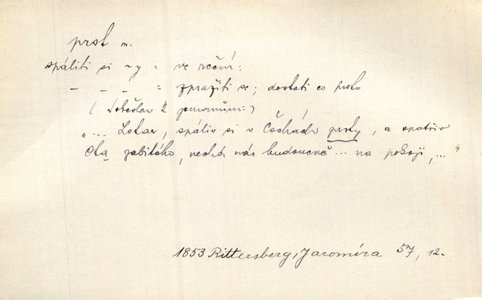 prst m.
spáliti si ~y = ve rčení:
– „ „ = zpražiti se; dostati co proto
(Soběslav k
„... Lotar, spáliv si v Čechách prsty, a spatřiv
Otu zabitého, nechá nás budoucně ... na pokoji, ..."
1853 Rittersberg, Jaromíra 57, 12.